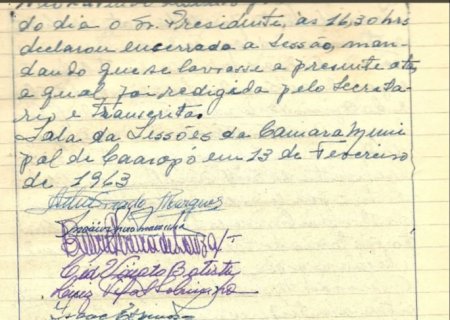 do dia o Sr. Presidente, às 16,30 hrs
declarou encerrada a Sessão, man-
dando que se lavrasse a presente ata,
a qual foi redigida pelo Secretá-
rio e transcrita.
Sala da Sessões da Câmara Muni
pal de Caarapó em 13 de Fevereiro
de 1963
Marques
de Souza
Batista